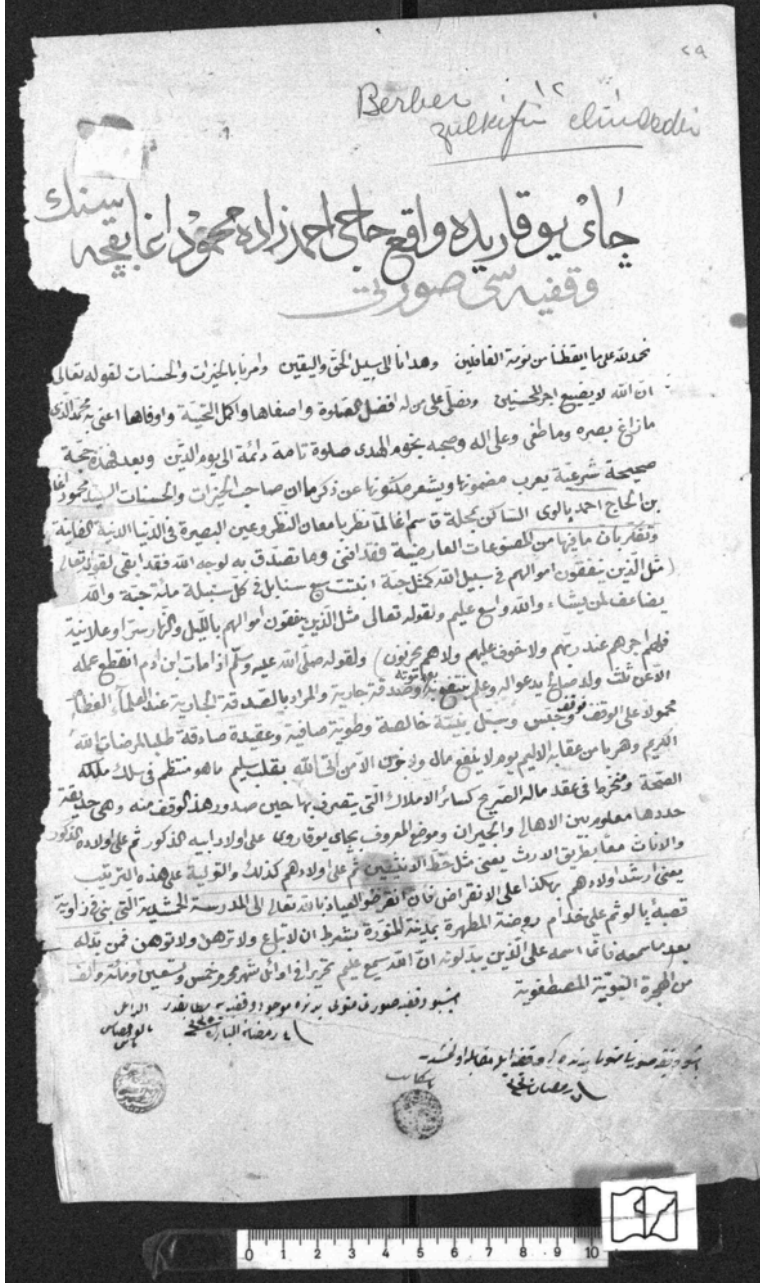 ٢٩
١٢
Berber
zülkifin elindedir
چاى يوقاريده واقع حاجى احمد زاده محمود اغا باقچه سنك
وقفيه سى صورتى
نحمد لله على ما ايقظنا من نومة الغافلين وهدانا الى سبيل الحق واليقين وامرنا بالخيرات والحسنات لقوله تعالى
ان الله لا يضيع اجر المحسنين ونصلى على من له افضل الصلوة واصفاها واكمل التحية واوفاها اعنى به محمد الذى
ما زاغ بصره وما طغى وعلى اله وصحبه نجوم الهدى صلوة تامة دائمة الى يوم الدين وبعد فهذه حجة
صحيحة شرعية يعرب مضمونها ويشعر مكنونها عن ذكر ما ان صاحب الخيرات والحسنات السيد محمود اغا
بن الحاج احمد بالوى الساكن بمحلة قاسم اغا لما نظر بامعان النظر وعين البصيرة فى الدنيا الدنية الفانية
وتفكر بان ما فيها من المصنوعات العارضية فقد افنى وما تصدق به لوجه الله فقد ابقى لقوله تعالى
(مثل الذين ينفقون اموالهم فى سبيل الله كمثل حبة انبتت سبع سنابل فى كل سنبلة مائة حبة والله
يضاعف لمن يشاء والله واسع عليم ولقوله تعالى مثل الذين ينفقون اموالهم بالليل والنهار سرا وعلانية
فلهم اجرهم عند ربهم ولا خوف عليهم ولا هم يحزنون) ولقوله صلى الله عليه وسلم اذا مات ابن ادم انقطع عمله
الا عن ثلث ولد صالح يدعو له وعلم ينتفع به بعد موته وصدقة جارية والمراد بالصدقة الجارية عند العلماء العظام
محمولة على الوقف فوقف وحبس وسبل بنية خالصة وطوية صافية وعقيدة صادقة طلبا لمرضات الله
الكريم وهربا من عقابه الاليم يوم لا ينفع مال ولا بنون الا من اتى الله بقلب سليم ما هو منتظم فى سلك ملكه
الصحة ومنخرط فى عقد ماله الصريح كسائر الاملاك التى يتصرف بها حين صدور هذ الوقف منه وهى حديقة
حددها معلوم بين الاهالى والجيران وموضع المعروف بچاى يوقاروى على اولاد ابيه الذكور ثم على اولاده الذكور
والاناث معا بطريق الارث يعنى مثل حظ الانثيين ثم على اولادهم كذلك والتولية على هذه الترتيب
يعنى ارشد اولادهم هكذا على الانقراض فان انقرض والعياذ بالله تعالى الى المدرسة الجمشدية التى بنى فى زاوية
قصبة بالو ثم على خدام روضة المطهرة بمدينة المنورة بشرط ان لا تباع ولا ترهن ولا توهن فمن بدله
بعد ما سمعه فانما اثمه على الذين يبدلونه ان الله سميع عليم تحريرا فى اوائل شهر محرم خمس وتسعين ومائة والف
من الهجرة النبوية المصطفوية
اشبو وقفيه صورتى متولى يدنده موجود وقفيه يه مطابقدر
رمضان المبارك
اشبو وقفيه صورتى
رمضان